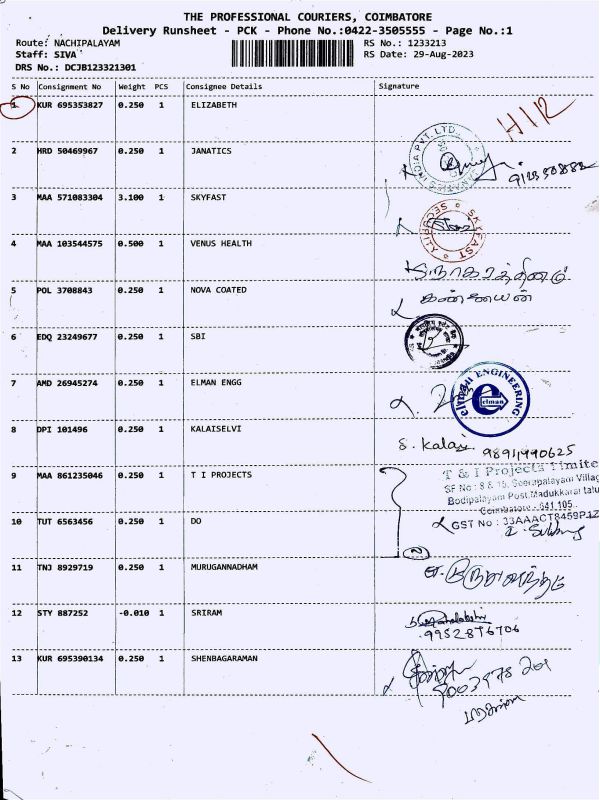 THE PROFESSIONAL COURIERS, COIMBATORE
Delivery Runsheet - PCK - Phone No.:0422-3505555 - Page No.:1
Route: NACHIPALAYAM RS No.: 1233213
Staff: SIVA RS Date: 29-Aug-2023
DRS No.: DCJB123321301
S No Consignment No Weight PCS Consignee Details Signature
1 KUR 695353827 0.250 1 ELIZABETH
2 HRD 50469967 0.250 1 JANATICS
3 MAA 571083304 3.100 1 SKYFAST
SECURITY
4 MAA 103544575 0.500 1 VENUS HEALTH
5 POL 3708843 0.250 1 NOVA COATED
6 EDQ 23249677 0.250 1 SBI
7 AMD 26945274 0.250 1 ELMAN ENGG
ENGINEERING
elman
8 DPI 101496 0.250 1 KALAISELVI
S. Kalai
9 MAA 861235046 0.250 1 T I PROJECTS
T & I Projects Limite
Bodipalayam Post, Madukkarai talu
Coimbatore - 641 105
10 TUT 6563456 0.250 1 DO
GST No : 33AAACT8459P1Z
11 TNJ 8929719 0.250 1 MURUGANNADHAM
12 STY 887252 -0.010 1 SRIRAM
9952876706
13 KUR 695390134 0.250 1 SHENBAGARAMAN